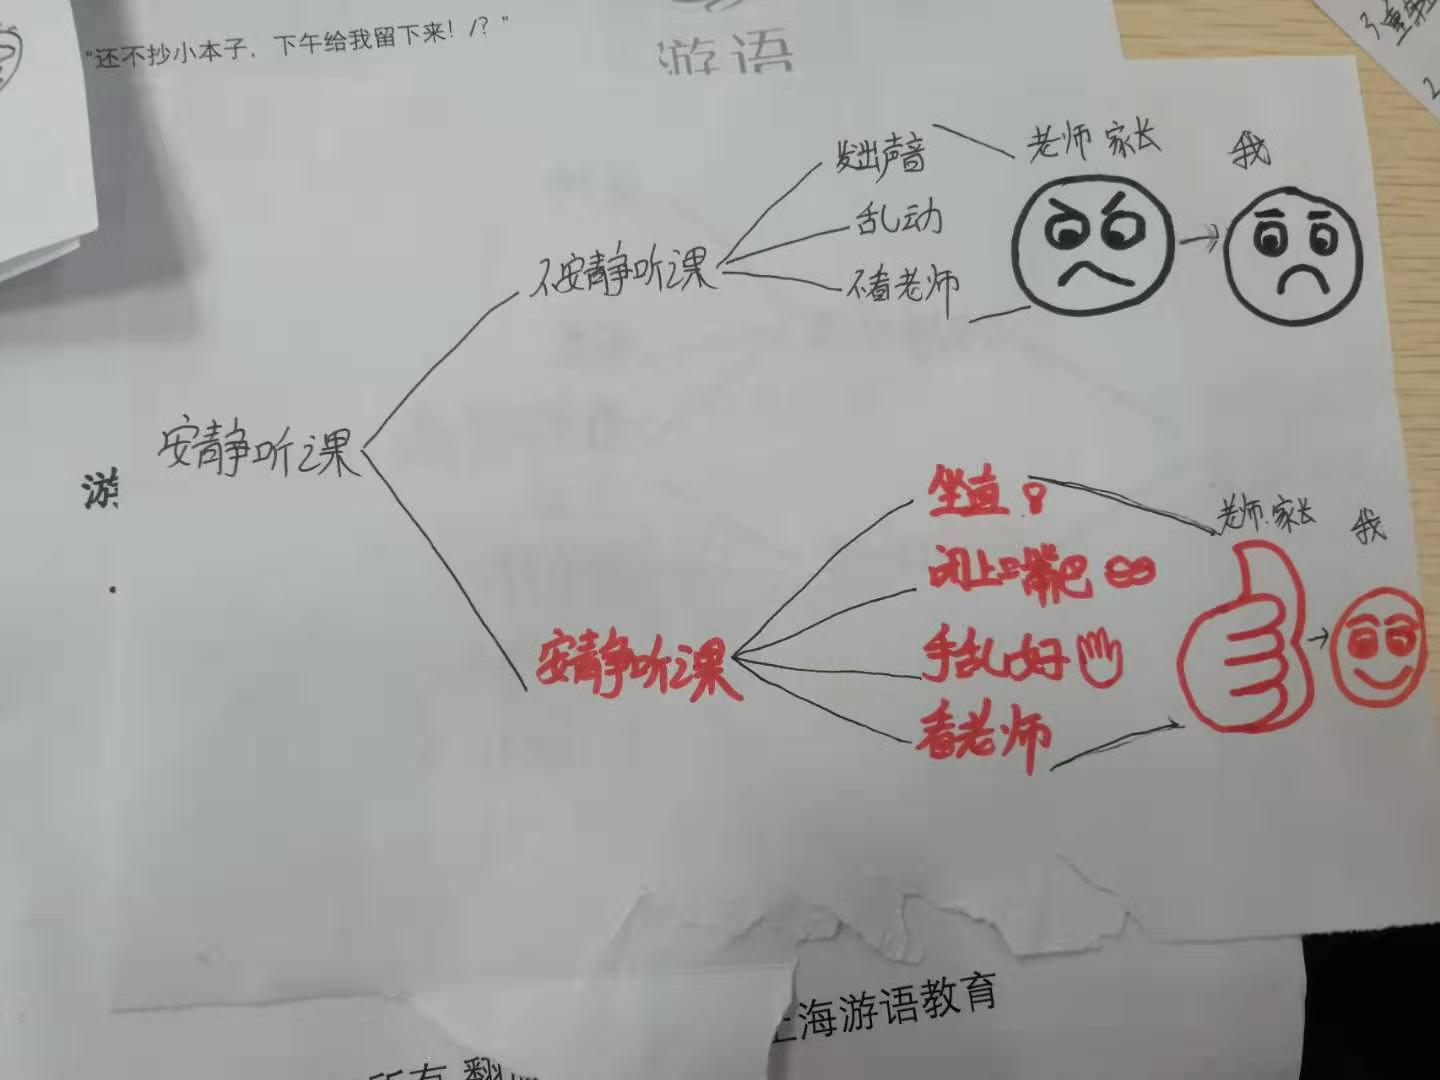 "还不抄小本子，下午给我留下来！/？"
游语
发出声音
老师 家长
我
乱动
不安静听课
不看老师
安静听课
游
坐直
老师.家长
我
闭上嘴巴
手乱好
安静听课
看老师
上海游语教育
所有 翻